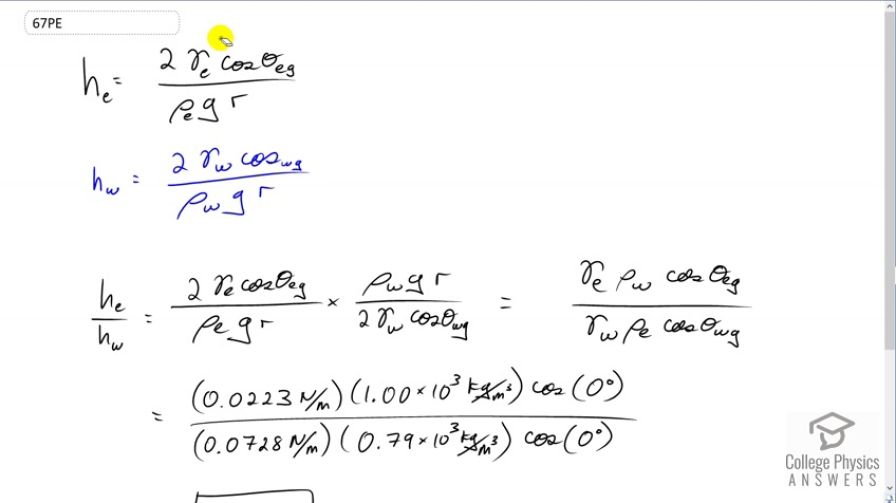 67PE
hₑ = 2 γₑ cosθₑg / ρₑ g r
h_w = 2 γ_w cos_wg / ρ_w g r
hₑ / h_w = 2 γₑ cosθₑg / ρₑ g r × ρ_w g r / 2 γ_w cosθ_wg = γₑ ρ_w cosθₑg / γ_w ρₑ cosθ_wg
= (0.0223 N/m)(1.00 × 10³ kg/m³) cos(0°) / (0.0728 N/m)(0.79 × 10³ kg/m³) cos(0°)
College Physics
ANSWERS